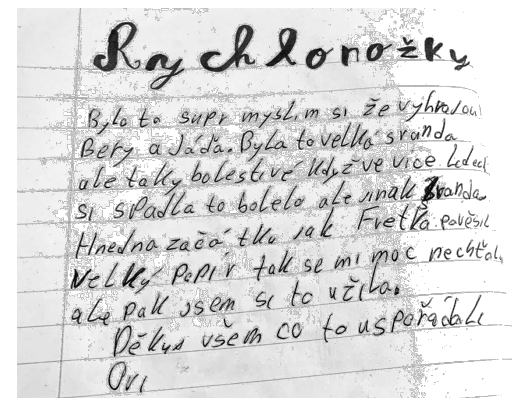 Rychlonožky
Bylo to supr myslim si že vyhrajou
Bery a Jáďa. Byla to velká sranda
ale taky bolestivé když ve více lidech
si spadla to bolelo ale jinak sranda
Hnedna začátku jak Fretka pověsil
velký papír tak se mi moc nechtělo
ale pak jsem si to užila.
Děkuji všem co to uspořádali
Ovi